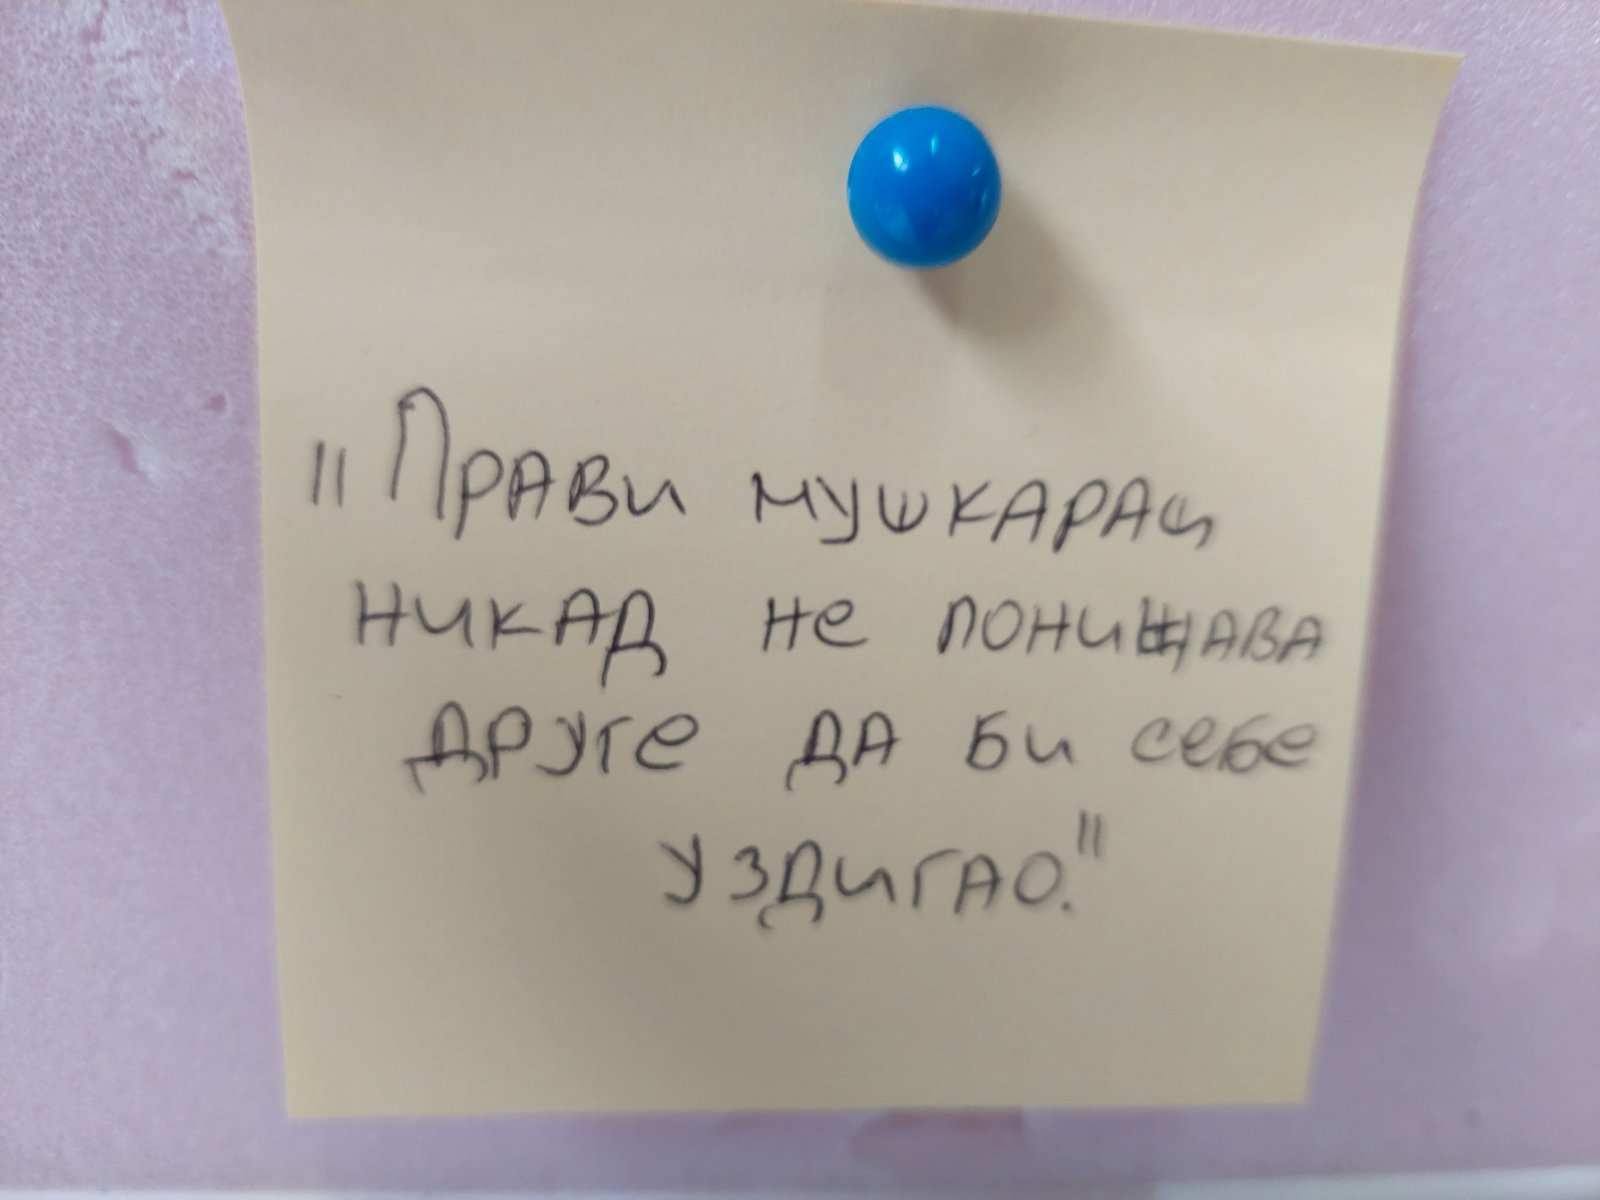 "Прави мушкарац
никад не понижава
друге да би себе
уздигао."